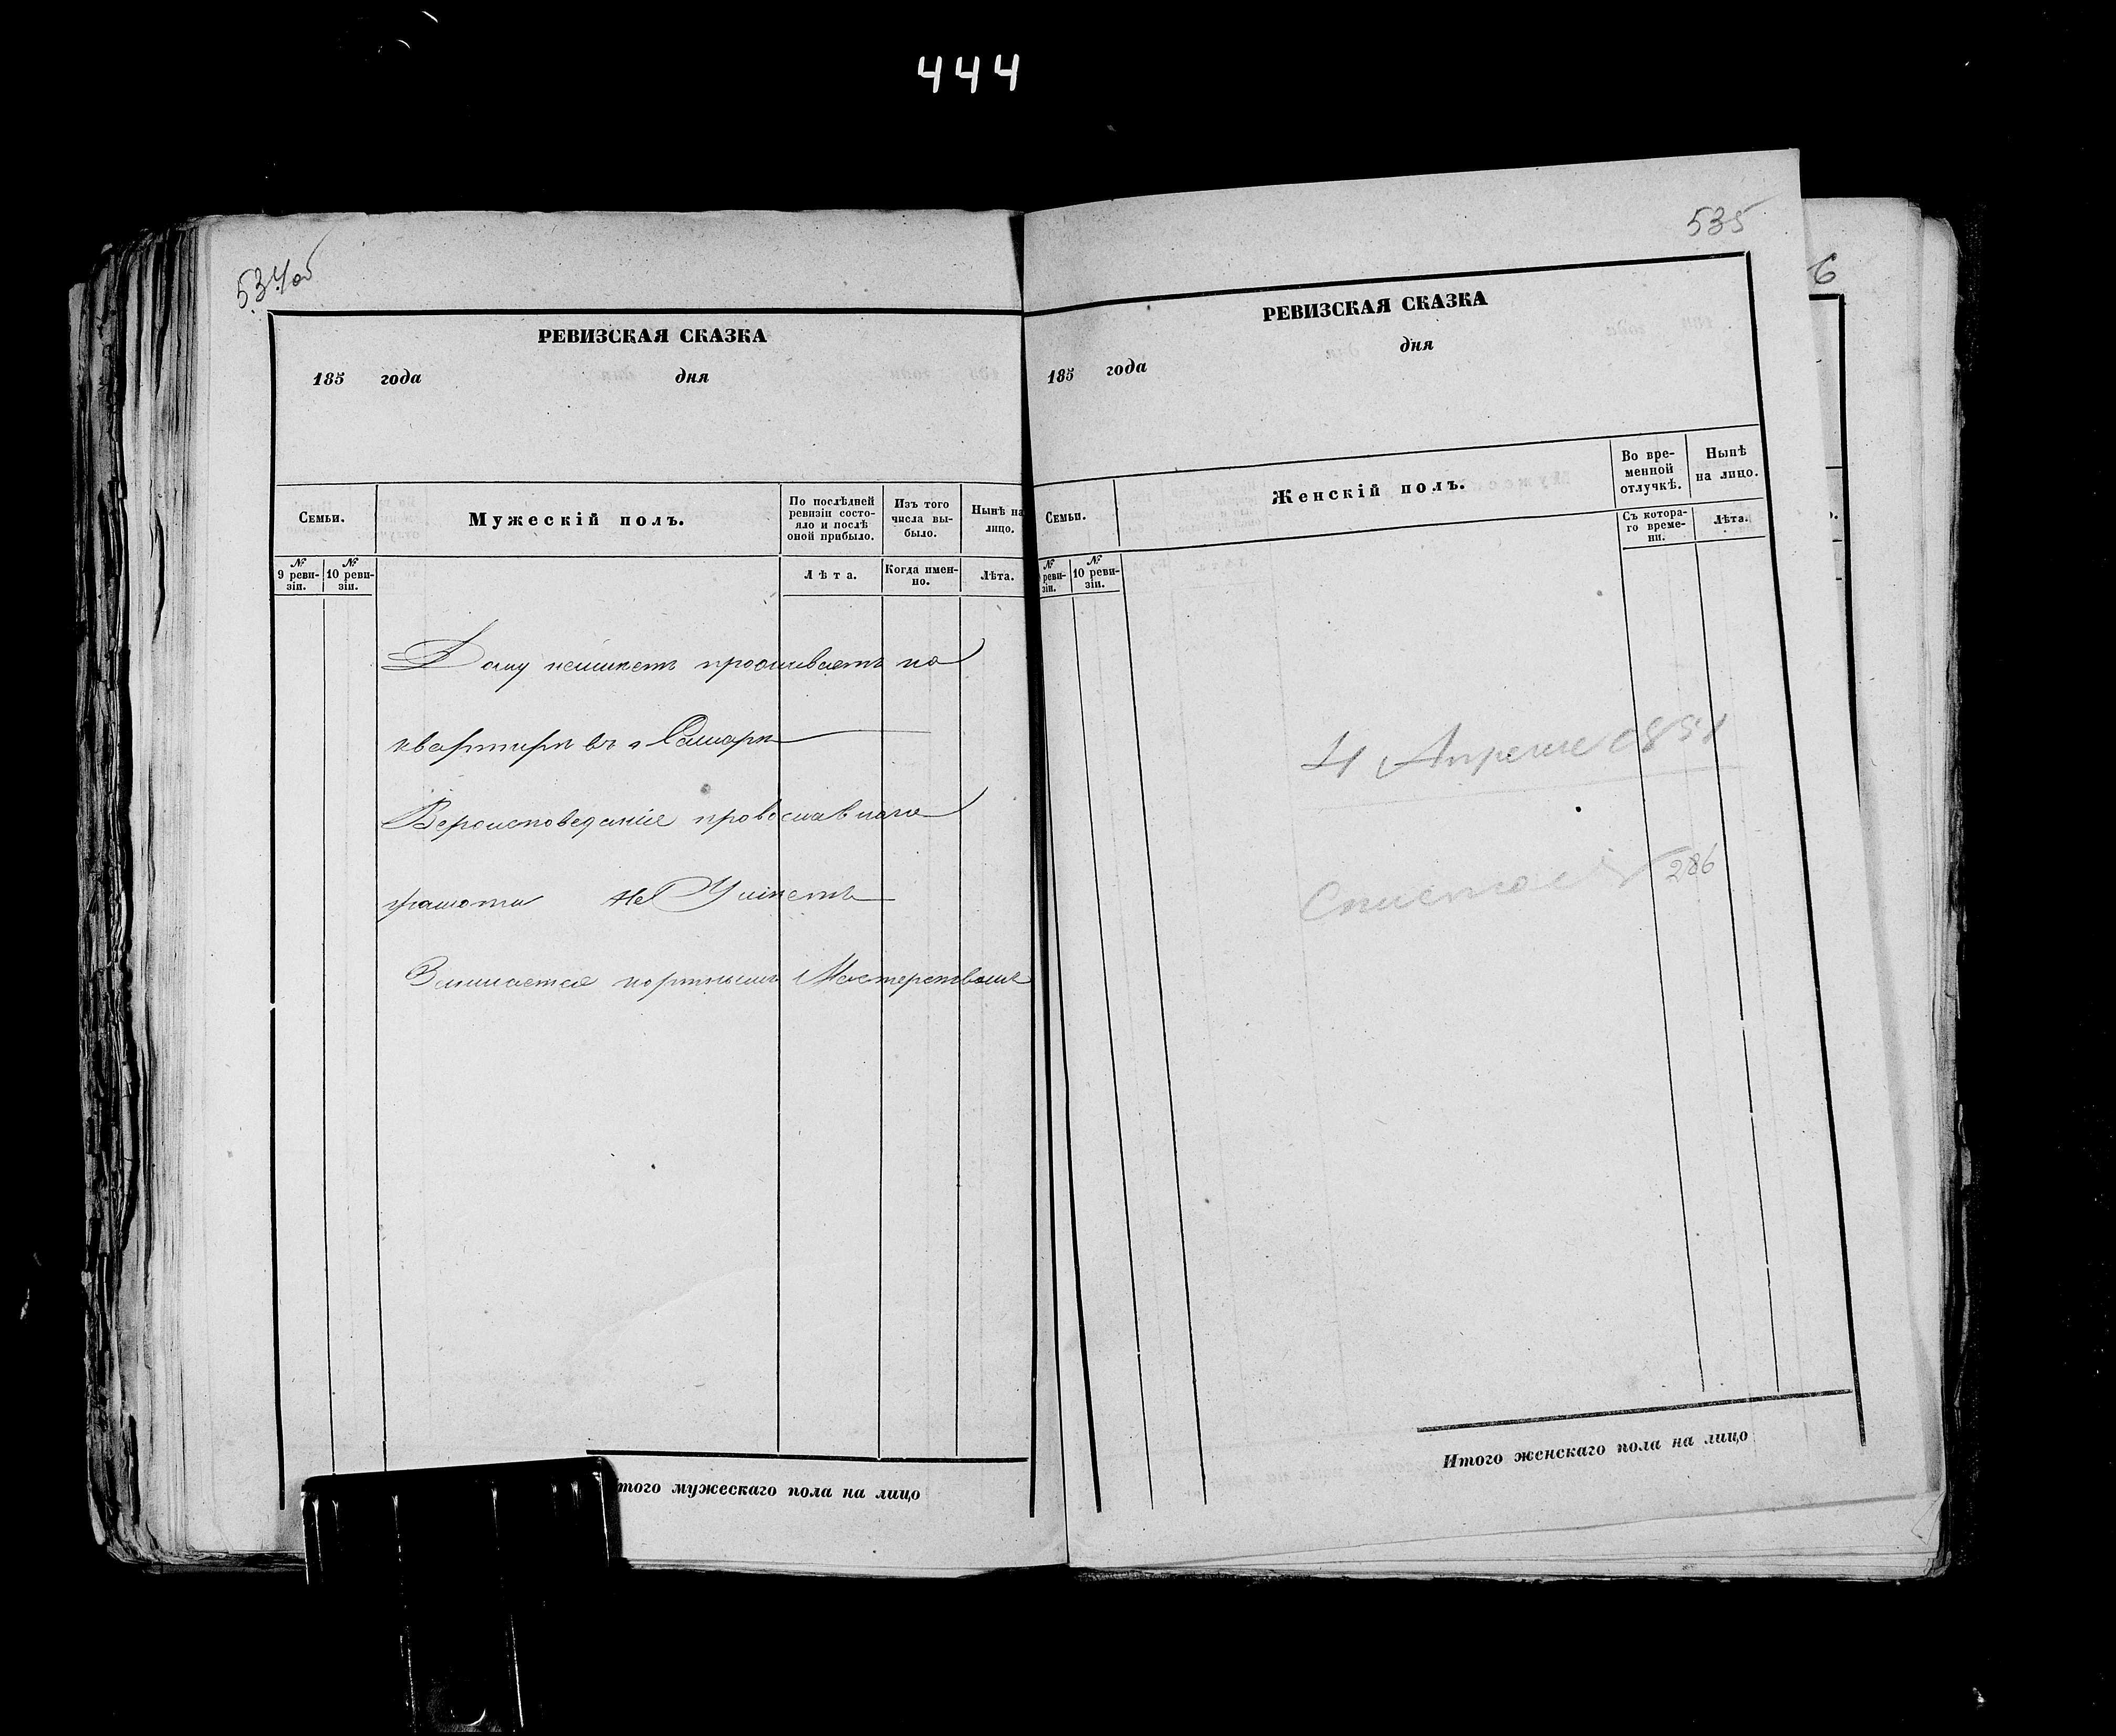 444
534об
РЕВИЗСКАЯ СКАЗКА
185 года дня
Семьи.
Мужескій полъ.
По послѣдней ревизіи состояло и послѣ оной прибыло.
Изъ того числа выбыло.
Нынѣ на лицо.
№ 9 ревизіи.
№ 10 ревизіи.
Лѣта.
Когда именно.
Лѣта.
Дому неимеет проживаетъ на
квартире въ г Самаре
Вероисповеданіе провославнаго
грамоти не Умѣетъ
Занимается портнымъ Мастерствомъ
того мужескаго пола на лицо
535
РЕВИЗСКАЯ СКАЗКА
185 года дня
Семьи.
Женскій полъ.
Во временной отлучкѣ.
Нынѣ на лицо.
№ реви-зіи.
№ 10 ревизіи.
Съ котораго времени.
Лѣта.
4 Апреля 1858
286
Итого женскаго пола на лицо
6